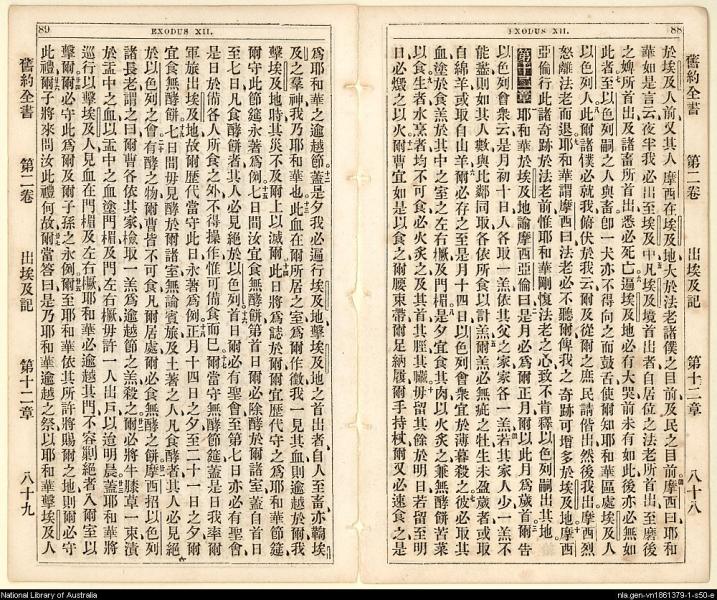 88
EXODUS XII.
舊約全書 第二卷 出埃及記 第十二章 八十八
於埃及人前又其人摩西在埃及地大於法老諸僕之目前及民之目前摩西曰耶和
華如是言云夜半我必出至埃及中凡埃及境首出者自居位之法老所首出至磨後
之婢所首出及諸畜所首出悉必死亡遍埃及地必有大哭前未有如此後亦必無如
此者至以色列嗣之人與畜卽一犬亦不得向之而鼓舌使爾知耶和華區處埃及人
以色列人此爾諸僕必就我俯伏於我云爾及從爾之庶民請偕出然後我出摩西烈
怒離法老而退耶和華謂摩西曰法老必不聽爾俾我之奇跡可增多於埃及地摩西
亞倫行此諸奇跡於法老前惟耶和華剛愎法老之心致不肯釋以色列嗣出其地
第十二章 耶和華於埃及地諭摩西亞倫曰是月必爲爾正月爾以此月爲歲首爾告
以色列會衆云是月初十日人各取一羔依其父之家家各一羔若其家人少一羔不
能盡則如其人數與比鄰同取各依所食以計羔爾羔必無疵之牡生未盈歲者或取
自綿羊或取自山羊爾必存之至是月十四日以色列會衆宜於薄暮殺之彼必取其
血塗於食羔於其中之室之左右橛及門楣是夕宜食其肉以火炙之兼無酵餅苦菜
以食生者水烹者均不可食必火炙之及其首其脛其臟毋留其餘於明日若留至明
日必燬之以火爾曹宜如是以食之爾腰束帶爾足納履爾手持杖爾又必速食之是
EXODUS XII.
89
爲耶和華之逾越節蓋是夕我必遍行埃及地擊埃及地之首出者自人至畜亦鞫埃
及之羣神我乃耶和華也此血在爾所居之室爲爾作徵我一見其血則逾越於爾我
擊埃及地時其災不及爾上以滅爾此日將爲誌於爾爾宜歷代守之爲耶和華節筵
爾守此節筵永著爲例七日間汝宜食無酵餅第首日爾必除酵於爾諸室蓋自首日
至七日凡食酵餅者其人必見絕於以色列首日爾必有聖會至第七日亦必有聖會
是日於備各人所食之外不得操作惟可備食而已爾當守無酵節筵蓋是日我率爾
軍旅出埃及地故爾歷代當守此日永著爲例正月十四日之夕至二十一日之夕爾
宜食無酵餅七日間毋見酵於爾諸室無論賓旅及土著之人凡食酵者其人必見絕
於以色列之會有酵之物爾曹皆不可食凡爾居處爾必食無酵之餅摩西招以色列
諸長老謂之曰爾曹各依其家檢取一羔爲逾越節之羔殺之爾必將牛膝草一束漬
於盂中之血以盂中之血塗門楣及門左右橛毋許一人出戶以迨明晨蓋耶和華將
巡行以擊埃及人見血在門楣及左右橛耶和華必逾越其門不容剿絕者入爾室以
擊爾爾必守此爲爾及爾子孫之永例爾至耶和華依其所許將賜爾之地則爾必守
此禮爾子將來問汝此禮何故爾當答曰是乃耶和華逾越之祭以耶和華擊埃及人
舊約全書 第二卷 出埃及記 第十二章 八十九
National Library of Australia
nla.gen-vn1861379-1-s50-e